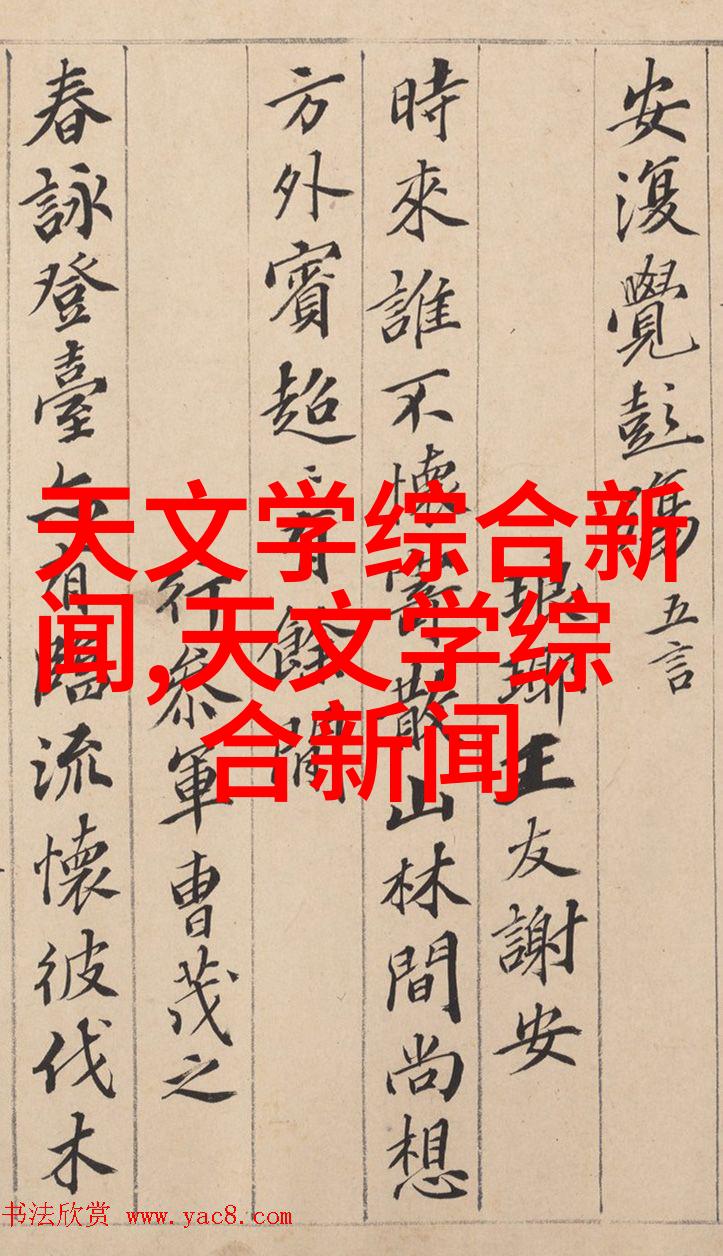 安復覺彭殤五言
琅瑘王友謝安
時來誰不懷寄散山林間尚想
方外賓超〻有餘閒
行參軍曹茂之
春詠登臺亦有臨流懷彼伐木
天文学综合新
闻,天文学综
合新闻
书法欣赏 www.yac8.com